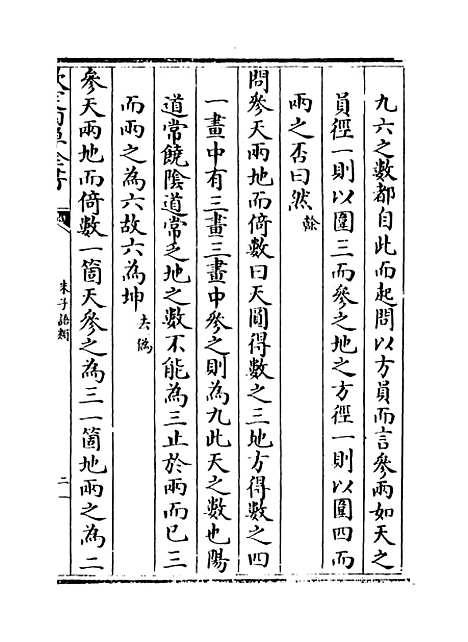 九六之數都自此而起問以方員而言參兩如天之
員徑一則以圍三而參之地之方徑一則以圍四而
兩之否曰然 榦
問參天兩地而倚數曰天圓得數之三地方得數之四
一畫中有三畫三畫中參之則為九此天之數也陽
道常饒陰道常乏地之數不能為三止於兩而已三
而兩之為六故六為坤 去偽
參天兩地而倚數一箇天參之為三一箇地兩之為二
朱子語類